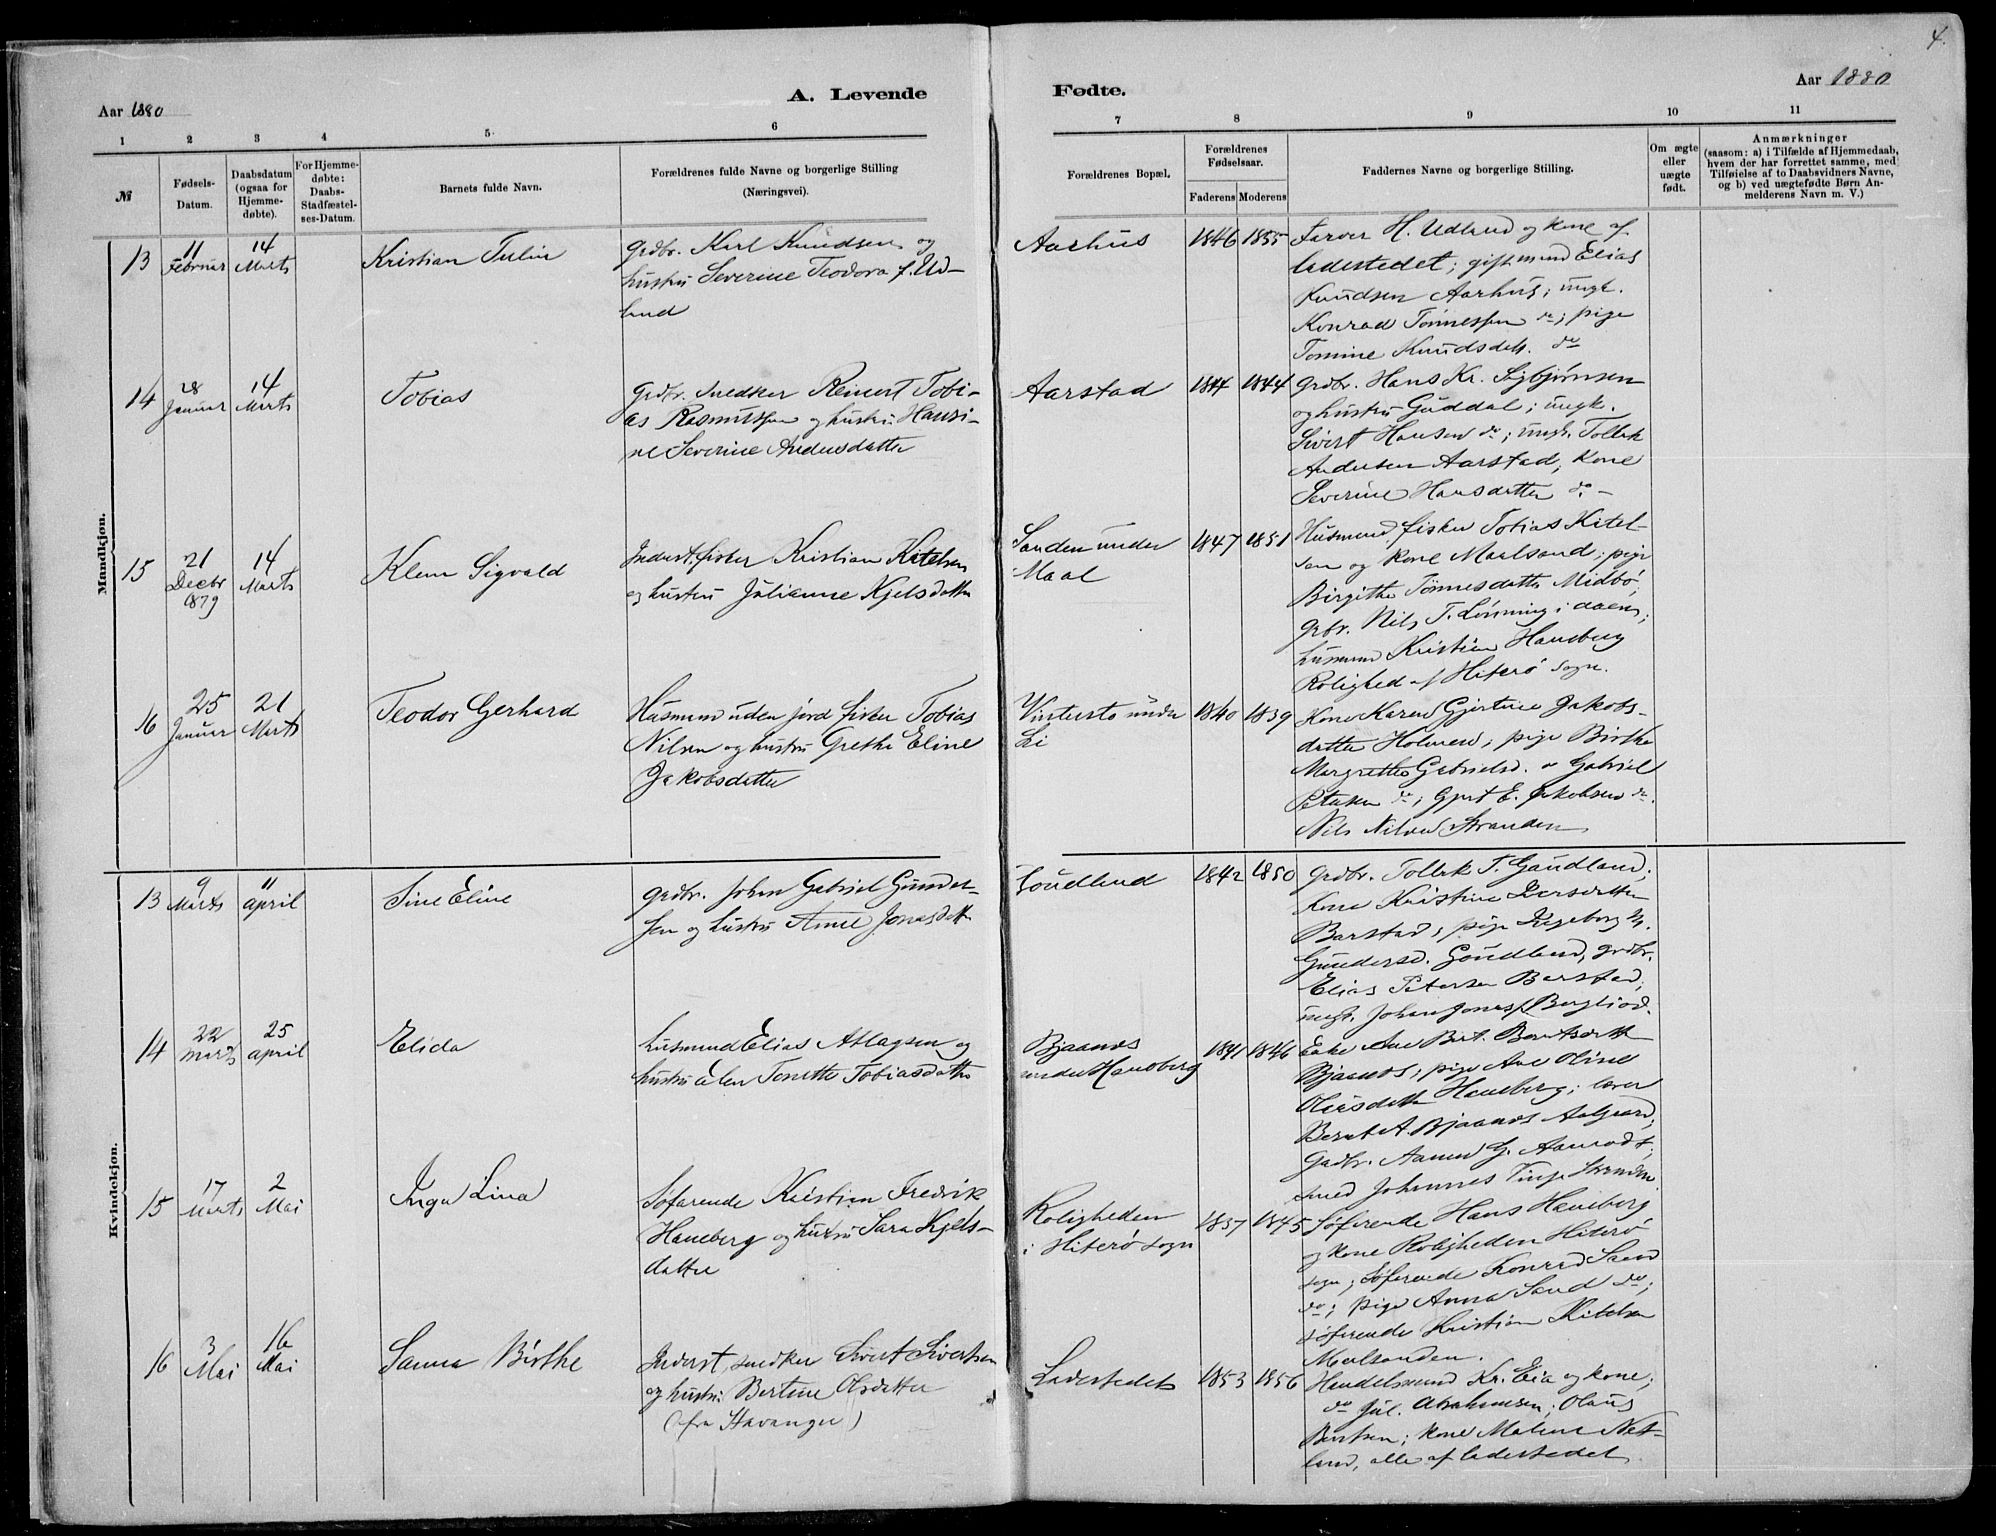 4.
Aar 1880
A. Levende
Fødte.
Aar 1880
1 2 3 4 5 6
7 8 9 10 11
№
Fødsels-
Datum.
Daabsdatum
(ogsaa for
Hjemme-
døbte).
For Hjemme-
døbte:
Daabs-
Stadfæstel-
ses-Datum.
Barnets fulde Navn.
Forældrenes fulde Navne og borgerlige Stilling
(Næringsvei).
Forældrenes Bopæl.
Forældrenes
Fødselsaar.
Faderens Moderens
Faddernes Navne og borgerlige Stilling.
Om ægte
eller
uægte
født.
Anmærkninger
(saasom: a) i Tilfælde af Hjemmedaab,
hvem der har forrettet samme, med
Tilføielse af to Daabsvidners Navne,
og b) ved uægtefødte Børn An-
melderens Navn m. V.)
Mandkjøn.
13
11
Februar
14
Marts
Kristian Tulin
Grdbr. Karl Knudsen og
hustru Severine Teodora f. Ud-
land
Aarhus
1846 1855
Farver H. Udland og kone af
ladestedet; gift mand Elias
Knudsen Aarhus; ungk.
Konrad Tønnessen do; pige
Tomine Knudsdatt. do
14
28
Januar
14
Marts
Tobias
Grdbr. Snedker Reinert Tobi-
as Rasmussen og hustru Hansi-
ne Severine Andersdatter
Aarstad
1844 1844
Grdbr. Hans Kr. Sigbjørnsen
og hustru Guddal; ungk.
Sivert Hansen do; ungk. Tollak
Andersen Aarstad; Kone
Severine Hansdatter do. -
15
21
Decbr
1879
14
Marts
Klem Sigvald
Inderst. fisker Kristian Kitelsen
og hustru Julianne Kjelsdatter
Sanden under
Maal
1847 1851
Husmand, fisker Tobias Kitel-
sen og kone Maalsand; pige
Birgithe Tønnesdatter Midbø;
grbr. Nils T. Lønning i daens;
husmand Kristian Haneberg
Rolighed af Hiterø sogn.
16
25
Januar
21
Marts
Teodor Gerhard
Husmand uden jord fisker Tobias
Nilsen og hustru Grethe Eline
Jakobsdatter
Vintersto under
Li
1840 1839
Kone Karen Gjertine Jakobs-
datter Holmen; pige Birthe
Margrethe Gabrielsd. Gabriel
Petersen do; Gjert E. Jakobsen do.
Nils Nilsen Stranden
Kvindekjøn.
13
9
Marts
11
april
Sine Eline
Grdbr. Johan Gabriel Gunder-
sen og hustru Anne Jonasdatter
Goudland
1842 1850
Grdbr. Tollak T. Gaudland;
Kone Kristine
Barstad; pige Ingeborg
Gundersd. Goudland, grdbr.
Elias Petersen Barstad;
ungk. Johan Jonass. Bergliod.
14
22
Marts
25
april
Elida
husmand Elias Atlagsen og
hustru Elen Tonette Tobiasdatter
Bjaanes
under Haneberg
1841 1846
Enke Ane Birt. Berntsdatter
Bjaanes; pige Ane Oline
Olaisdatter Haneberg; lærer
Bernt A. Bjaanes Aalgaard;
Gadbr. Aanen G. Aamodt;
smed Johannes Tinge Stranden
15
17
Marts
2
Mai
Inga Lina
Søfarende Kristian Fredrik
Haneberg og hustru Sara Kjels-
datter
Roligheden
i Hiterø sogn
1857 1845
Søfarende Hans Haneberg
og kone Roligheden Hiterø
sogn; Søfarende Konrad Sand
do; pige Anna Sand do;
søfarende Kristian Kitelsen
Maalsanden.
16
3
Mai
16
Mai
Sanna Birthe
Inderst, snedker Sivert Sivertsen
og hustru Bertine Olsdatter
(fra Stavanger)
Ladestedet
1853 1856
Handelsmand Kr. Eia og kone;
do Jul. Abrahamsen; Olaus
Berntsen; kone Malene Net-
land, alle af ladestedet